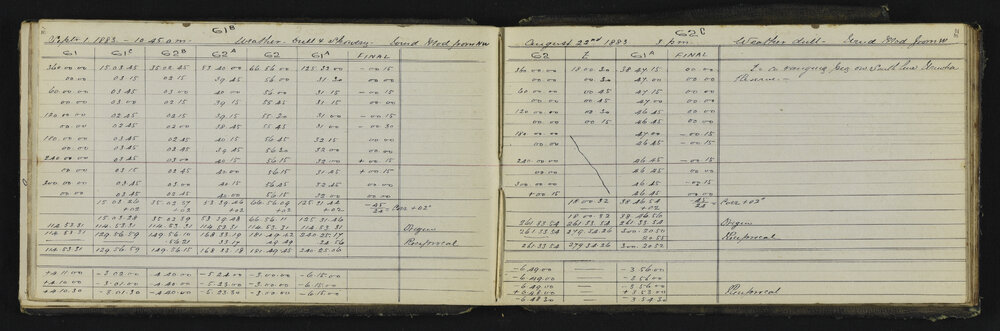 G1ᴮ
Septr 1. 1883. – 10.45 a.m. Weather – dull & showery. Wind Mod from NW
G1 G1ᶜ G2ᴮ G2ᴬ G2 G1ᴬ FINAL
360 00 00 15 03 45 35 02 45 53 40 00 66 56 00 125 32 00 – 00 15
00 00 03 15 02 15 39 45 56 00 31 30 00 00
60 00 00 03 45 03 00 40 00 56 00 31 15 – 00 15
00 00 03 15 02 45 39 15 55 45 31 15 00 00
120 00 00 02 45 02 45 39 15 55 30 31 00 – 00 15
00 00 02 45 02 00 38 45 55 45 31 00 – 00 30
180 00 00 03 45 02 45 40 15 56 45 32 15 00 00
00 00 03 45 02 45 39 45 56 30 32 00 00 00
240 00 00 03 45 03 00 40 15 56 15 32 00 + 00 15
00 00 03 15 02 45 40 00 56 15 31 45 + 00 15
300 00 00 03 45 03 00 40 15 56 45 32 15 00 00
00 00 03 45 02 45 40 00 56 15 32 00 00 00
15 03 26 35 02 37 53 39 46 66 56 09 125 31 44 –45/24 = Corr + 02"
+02 +02 +02 +02 +02
15 03 28 35 02 39 53 39 48 66 56 11 125 31 46
114 53 31 114 53 31 114 53 31 114 53 31 114 53 31 114 53 31 Origin
114 53 31 129 56 59 149 56 10 168 33 19 181 49 42 240 25 17
56 21 33 19 49 49 24 56 Reciprocal
114 53 31 129 56 59 149 56 15 168 33 18 181 49 45 240 25 06
+4.11.00 –3.02.00 –4.40.00 –5.24.00 –3.00.00 –6.15.00
+4.10.00 –3.01.00 –4.40.00 –5.23.00 –3.00.00 –6.15.00
+4.10.30 –3.01.30 –4.40.00 –5.23.30 –3.00.00 –6.15.00
G2ᶜ
August 22nd 1883 3 pm. Weather dull – Wind Mod from W
G2 Z G1ᴬ FINAL
360 00 00 18 00 30 38 47 15 00 00
00 00 00 30 47 00 00 00
60 00 00 00 45 47 15 00 00
00 00 00 45 47 00 00 00
120 00 00 00 30 46 45 00 00
00 00 00 15 46 45 00 00
180 00 00 47 00 – 00 15
46 45 – 00 15
240 00 00 46 45 – 00 15
46 45 00 00
300 00 00 46 45 – 00 15
+ 00 15 46 45 00 00
18 00 32 38 46 54 –45/24 = Corr + 02"
+02
18 00 32 38 46 56
261 33 54 261 33 54 261 33 54 Origin
261 33 54 279 34 26 300 20 50
20 55 Reciprocal
261 33 54 279 34 26 300 20 52
–6.49.00 –3.56.00
–6.49.00 –3.56.00
–6.49.00 –3.56.00
+6.48.00 +3.53.00 Reciprocal
–6.48.30 –3.54.30